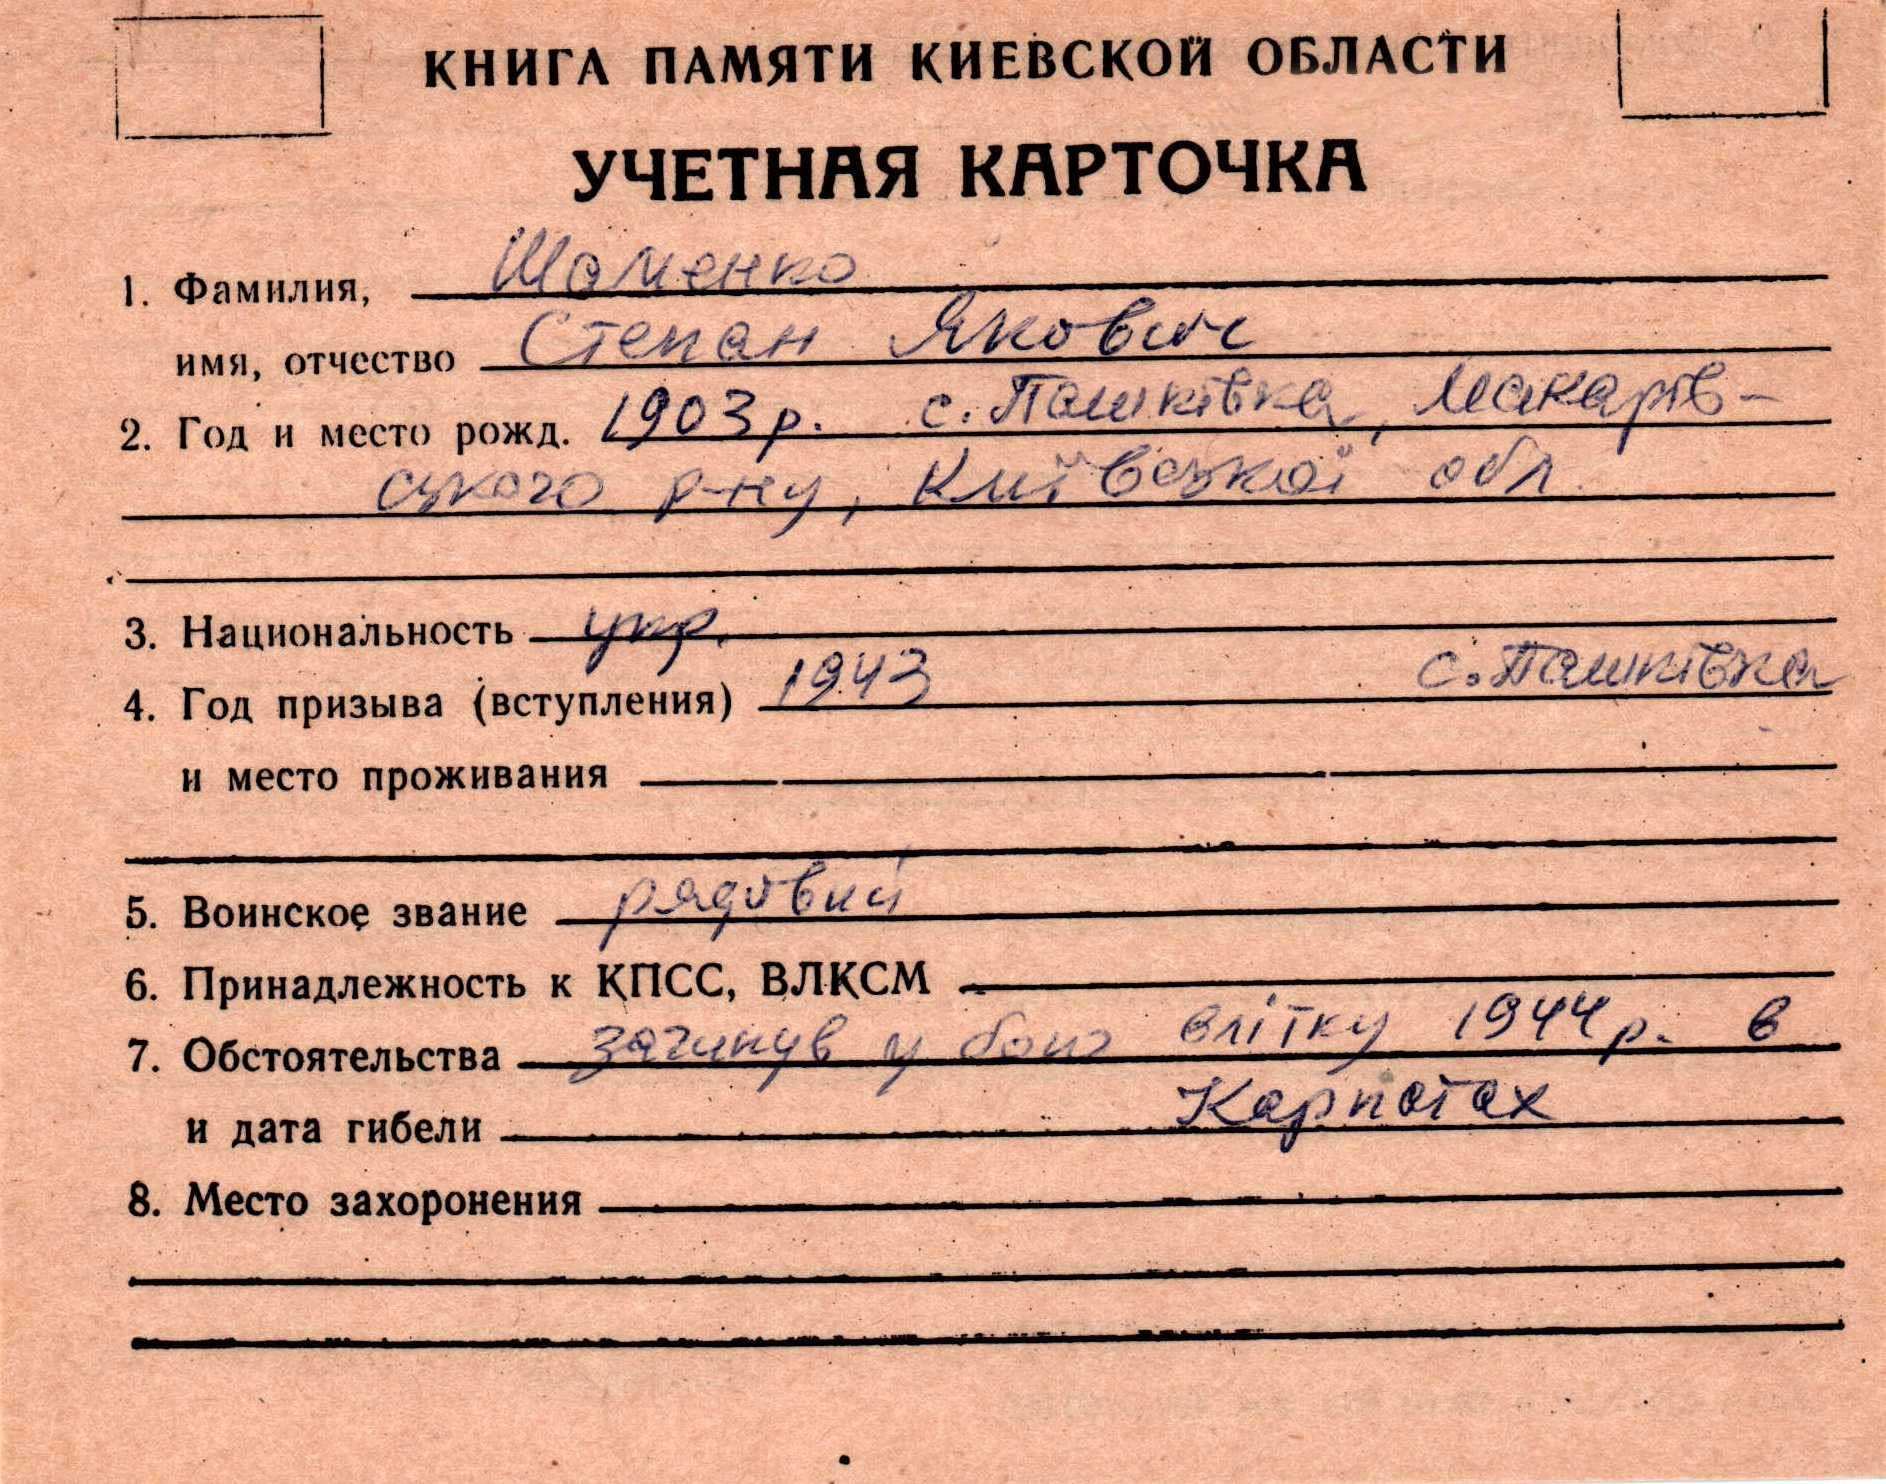 КНИГА ПАМЯТИ КИЕВСКОЙ ОБЛАСТИ
УЧЕТНАЯ КАРТОЧКА
1. Фамилия, Шаменко
имя, отчество Степан Якович
2. Год и место рожд. 1903 р. с. Пашківка, Макарів-
ського р-ну, Київської обл.
3. Национальность укр.
4. Год призыва (вступления) 1943 с. Пашківка
и место проживания
5. Воинское звание рядовий
6. Принадлежность к КПСС, ВЛКСМ
7. Обстоятельства загинув у бою влітку 1944 р. в
и дата гибели Карпатах
8. Место захоронения